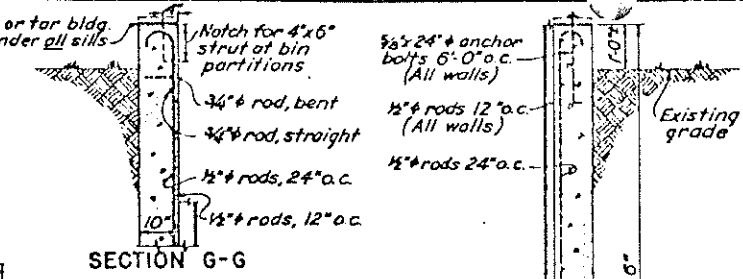 or tar bldg.
under all sills
Notch for 4"x6"
strut at bin
partitions
¾"ϕ rod, bent
¾"ϕ rod, straight
½"ϕ rods, 24" o.c.
½"ϕ rods, 12" o.c.
10"
SECTION G-G
⅝"x 24"ϕ anchor
bolts 6'-0" o.c.
(All walls)
½"ϕ rods 12" o.c.
(All walls)
½"ϕ rods 24" o.c.
Existing
grade
6"